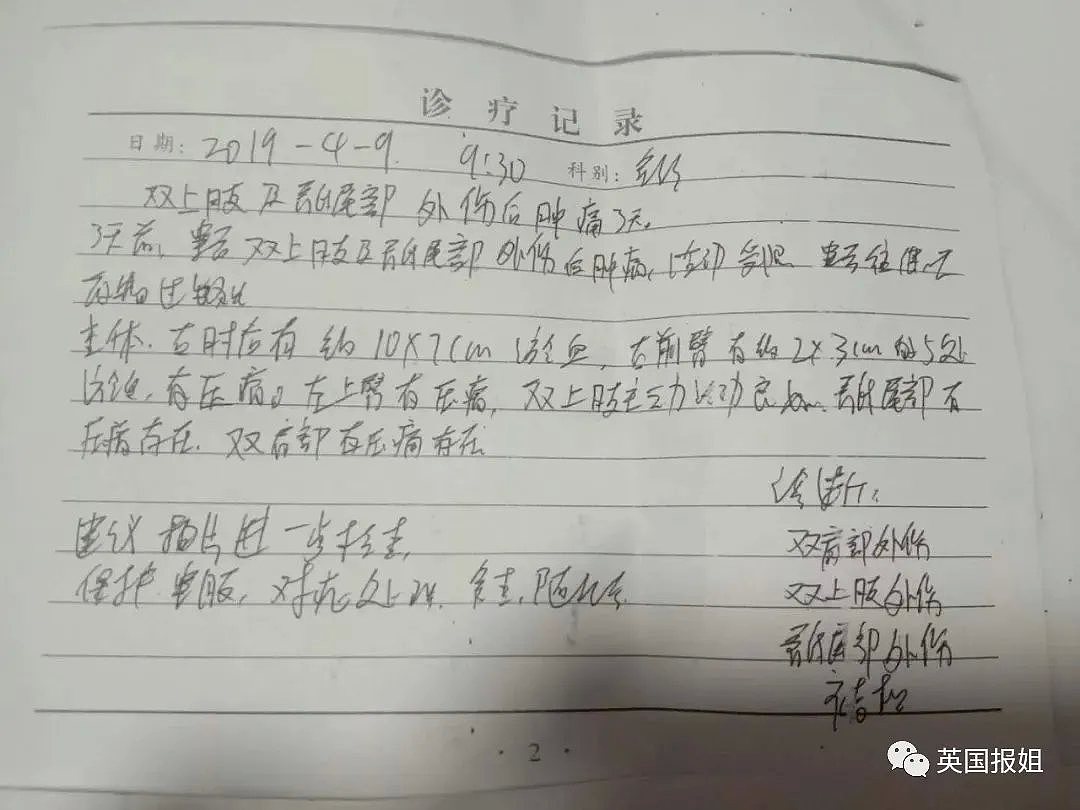 诊疗记录
日期: 2019-4-9. 9:30 科别:
双上肢及骶尾部外伤后肿痛3天。
3天前, 患者双上肢及骶尾部外伤后肿痛, 活动受限 患者往
药物过敏史
查体. 右肘后有约10x7cm瘀血, 右前臂有约2x3cm的5处
瘀血, 有压痛。左上臂有压痛, 双上肢主动活动良好. 骶尾部有
压痛存在. 双肩部有压痛存在
诊断:
建议拍片进一步检查,
双肩部外伤
保护患肢, 对症处理.
双上肢外伤
骶尾部外伤
· 2 ·
英国报姐